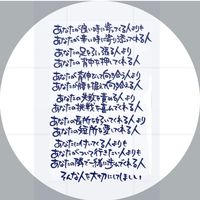 あなたが強い時に寄ってくる人よりも
あなたが辛い時に寄り添ってくれる人
あなたの足を引っ張る人より
あなたの背中を押してくれる人
あなたが背中むいて向き合う人より
あなたが膝を抱えて向き合える人
あなたの失敗を責める人より
あなたの挑戦を喜んでくれる人
あなたの長所を好いてくれる人より
あなたの短所を愛してくれる人
あなたに付いてくる人よりも
あなたがついて行きたい人よりも
あなたの隣で一緒に歩んでくれる人
そんな人を大切にしてほしい